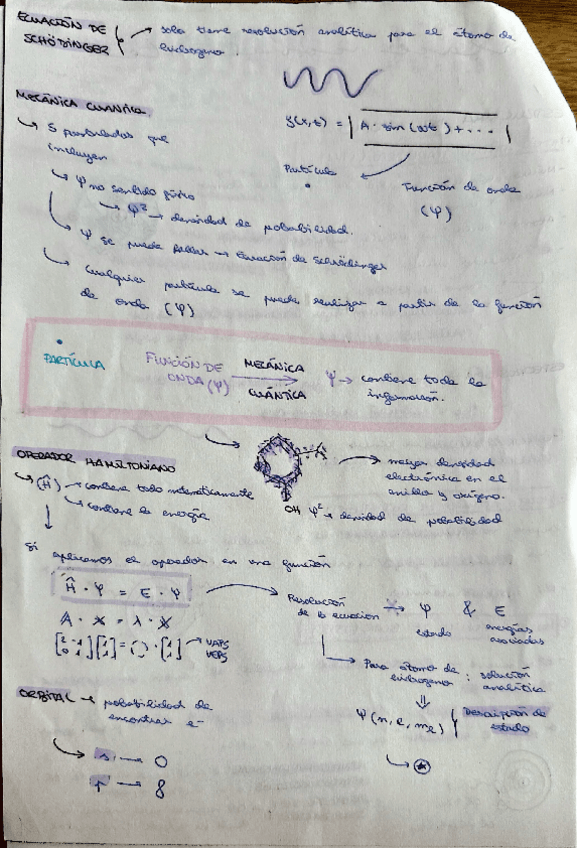 ECUACIÓN DE
SCHÖDINGER
→ solo tiene resolución analítica para el átomo de
hidrógeno.
MECÁNICA CUÁNTICA
↳ 5 postulados que
incluyen
y(x,t) = | A · sin (ωt) + ... |
Partícula
Función de onda
(Ψ)
↳ Ψ no sentido físico
↳ Ψ² → densidad de probabilidad.
Ψ se puede hallar → Ecuación de Schrödinger
Cualquier partícula se puede realizar a partir de la función
de onda (Ψ)
PARTÍCULA
FUNCIÓN DE
ONDA (Ψ)
MECÁNICA
CUÁNTICA
Ψ → contiene toda la
información.
OPERADOR HAMILTONIANO
↳ (Ĥ) → contiene todo matemáticamente
↳ contiene la energía
→ mayor densidad
electrónica en el
anillo y oxígeno.
OH
Ψ² → densidad de probabilidad
Si aplicamos el operador en una función
Ĥ · Ψ = E · Ψ
A · x = λ · x
VAPS
VEPS
Resolución
de la ecuación
Ψ & E
estado
energías
asociadas
→ Para átomo de
hidrógeno : solución
analítica
⇓
Ψ (n, l, ml)
Descripción de
estado
ORBITAL → probabilidad de
encontrar e-
s → O
p → 8